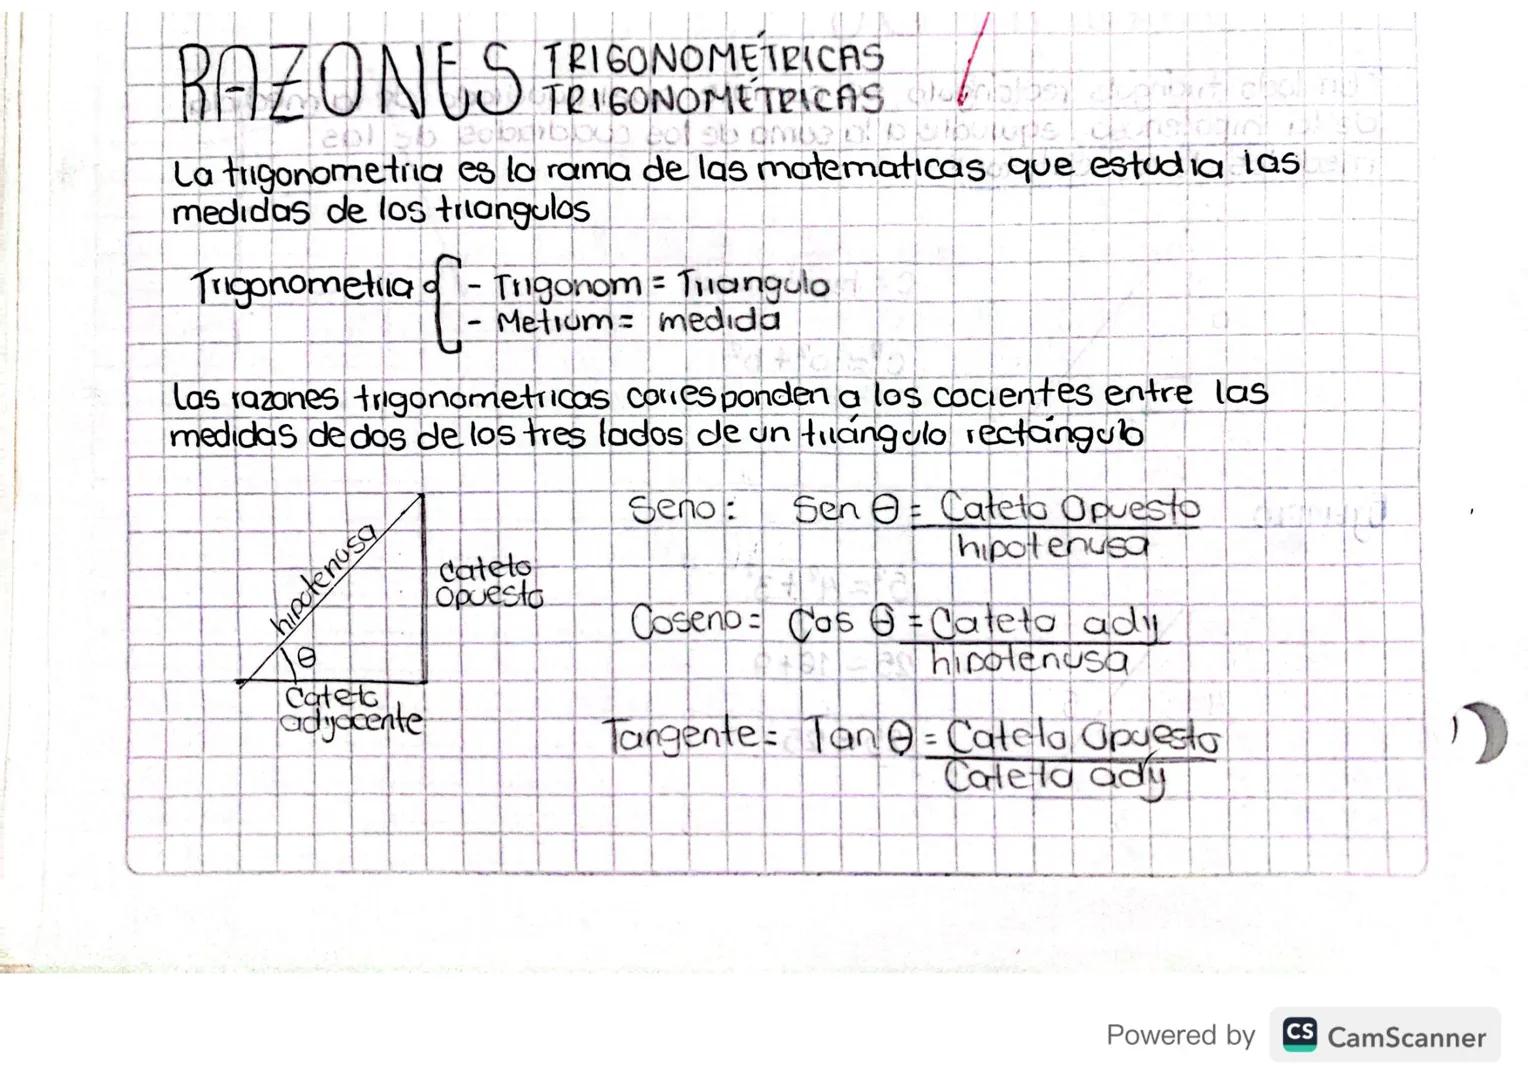 RAZONES TRIGONOMÉTRICAS
TRIGONOMÉTRICAS
La trigonometria es la rama de las matematicas que estudia las
medidas de los triangulos
Trigonometria
- Trigonom = Triangulo
- Metrum = medida
Las razones trigonometricas corresponden a los cocientes entre las
medidas de dos de los tres lados de un triángulo rectángulo
hipotenusa
θ
Cateto
adyacente
cateto
opuesto
Seno: Sen θ = Cateto Opuesto
hipotenusa
Coseno = Cos θ = Cateto ady
hipotenusa
Tangente = Tan θ = Cateto Opuesto
Cateto ady
Powered by CS CamScanner